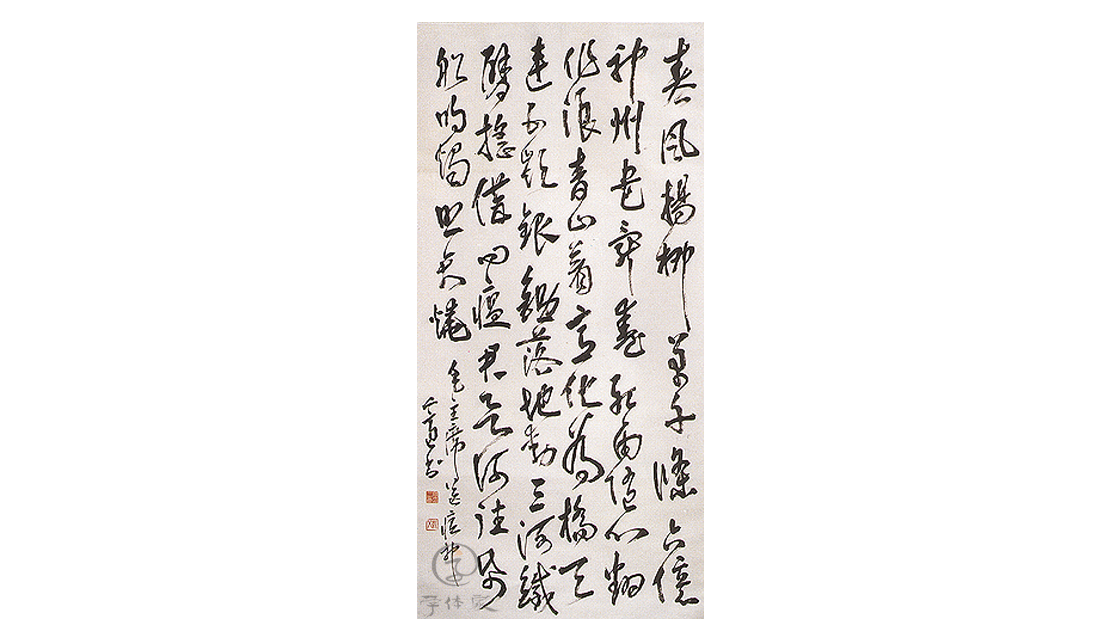 春風楊柳萬千條六億
神州盡舜堯紅雨隨心翻
作浪青山着意化為橋天
連五嶺銀鋤落地動三河鐵
臂搖借問瘟君欲何往紙
船明燭照天燒
毛主席送瘟神
書
字体家